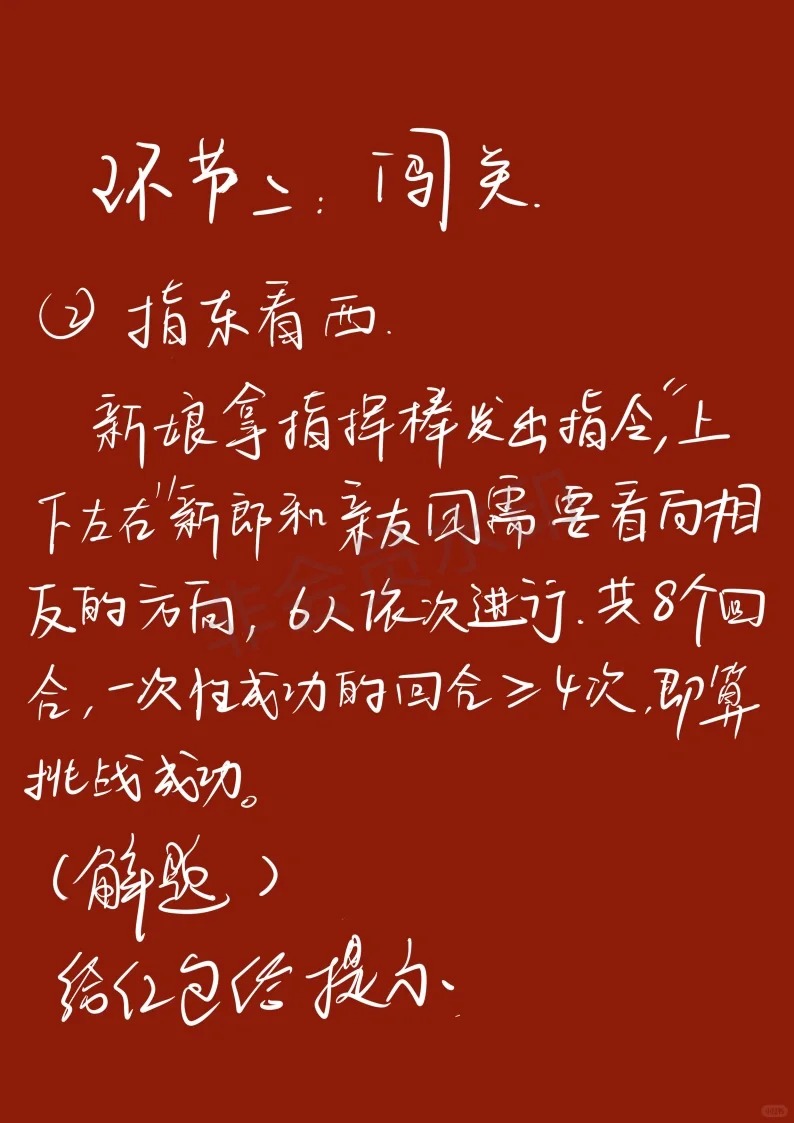 环节二：闯关.
② 指东看西.
新娘拿指挥棒发出指令,“上
下左右”新郎和亲友团需要看向相
反的方向，6人依次进行.共8个回
合，一次性成功的回合≥4次,即算
挑战成功。
（解题）
给红包给提示.
非会员水印